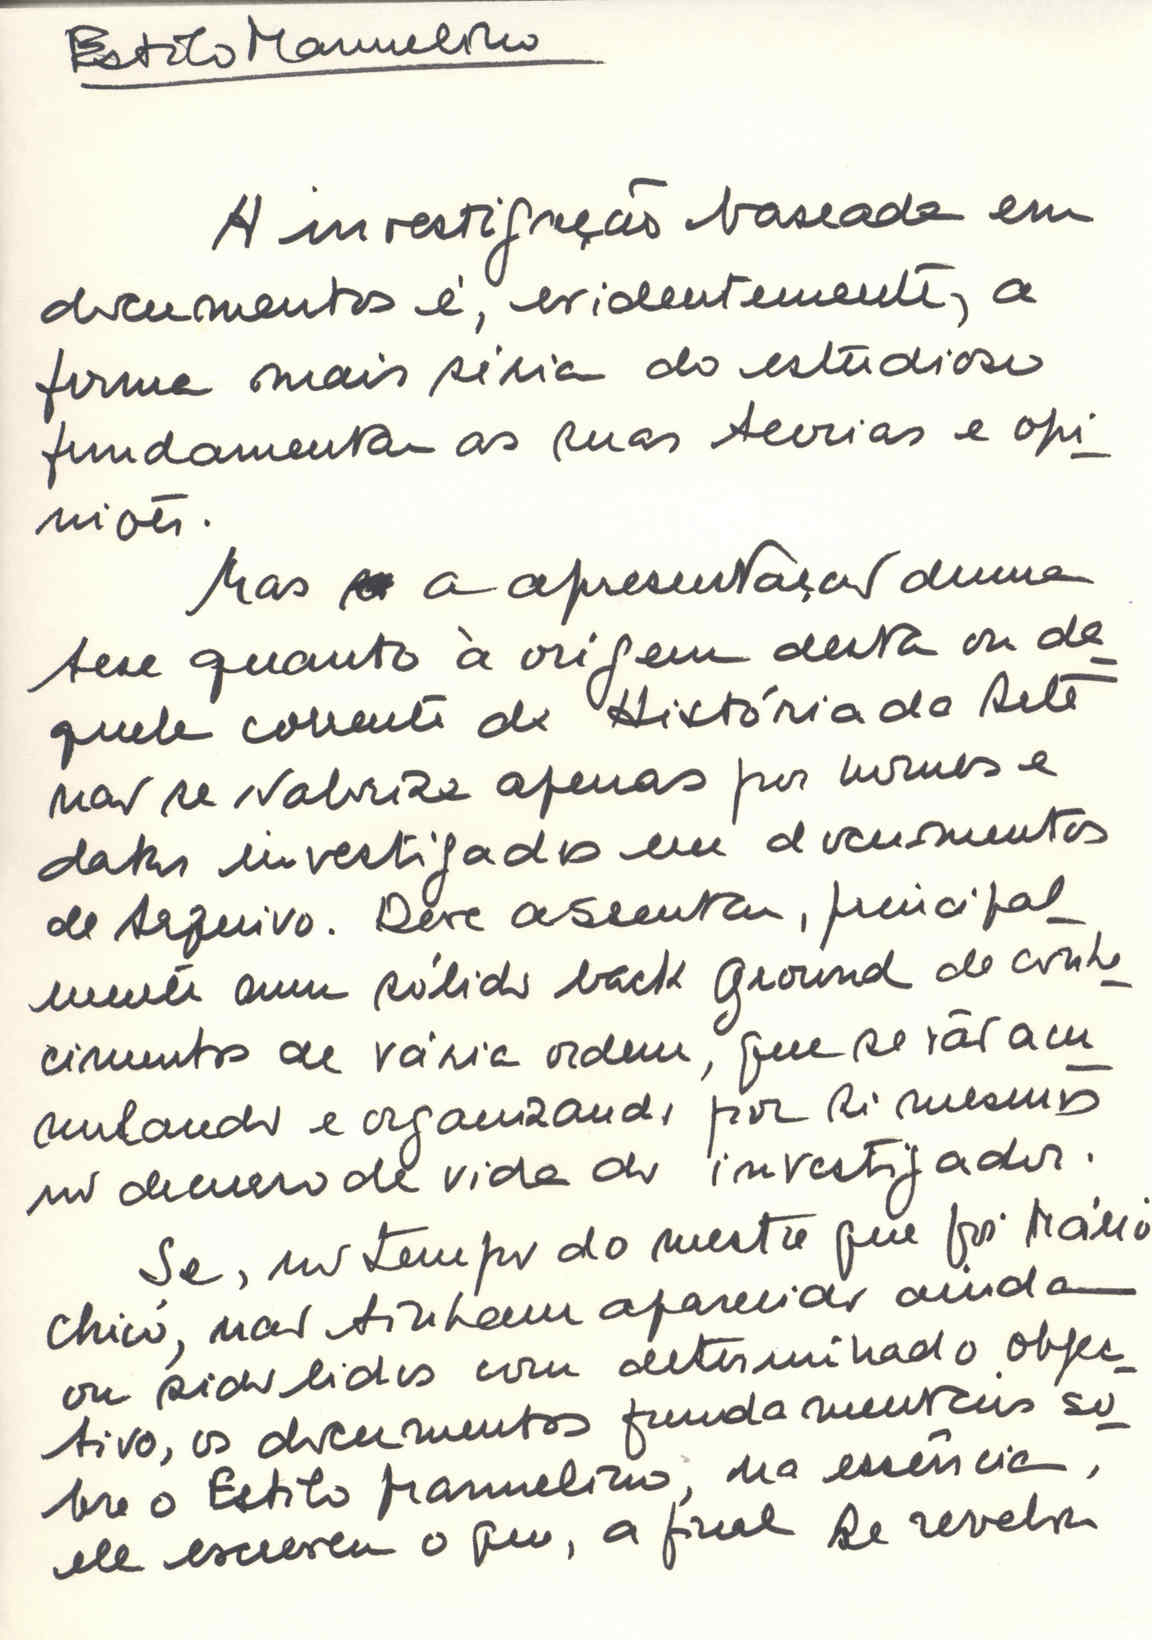 Estilo Manuelino
A investigação baseada em
documentos é, evidentemente, a
forma mais séria do estudioso
fundamentar as suas teorias e opi-
niões.
Mas a apresentação duma
tese quanto à origem desta ou da-
quela corrente da História da Arte
não se valoriza apenas por nomes e
datas investigados em documentos
de Arquivo. Deve assentar, principal-
mente num sólido back ground de conhe-
cimentos de vária ordem, que se vão acu
mulando e organizando por si mesmos
no decurso de vida do investigador.
Se, no tempo do mestre que foi Mário
Chicó, não tinham aparecido ainda
ou sido lidos com determinado objec-
tivo, os documentos fundamentais so-
bre o Estilo Manuelino, na essência,
ele escreveu o que, afinal se revelou